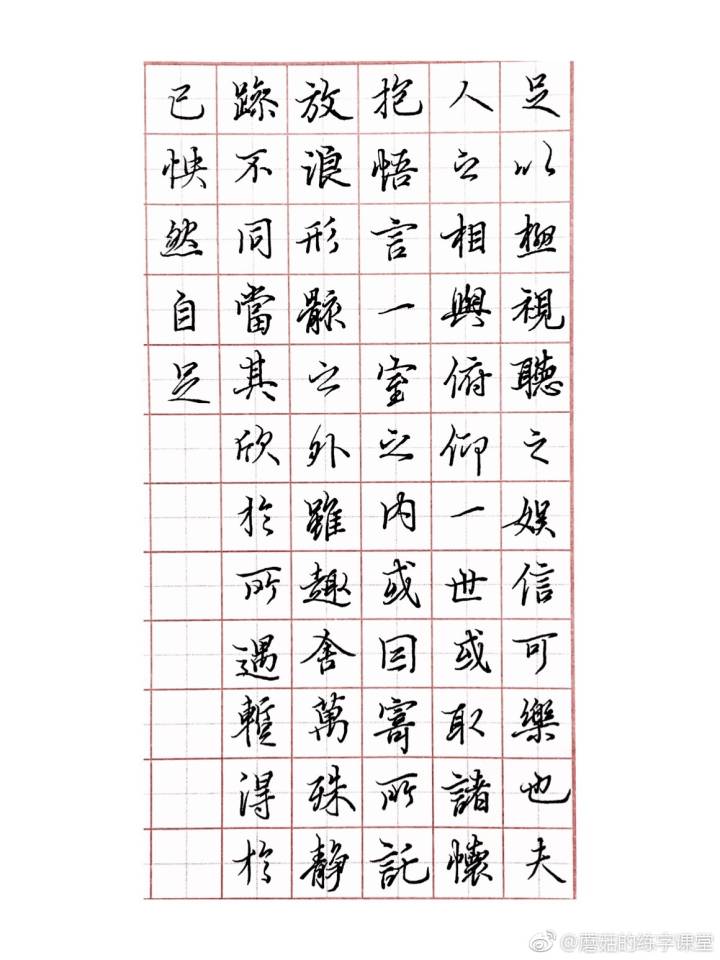 足以極視聽之娱信可樂也夫
人之相與俯仰一世或取諸懷
抱悟言一室之内或因寄所託
放浪形骸之外雖趣舍萬殊静
躁不同當其欣於所遇暫得於
己怏然自足
@蘑菇的练字课堂